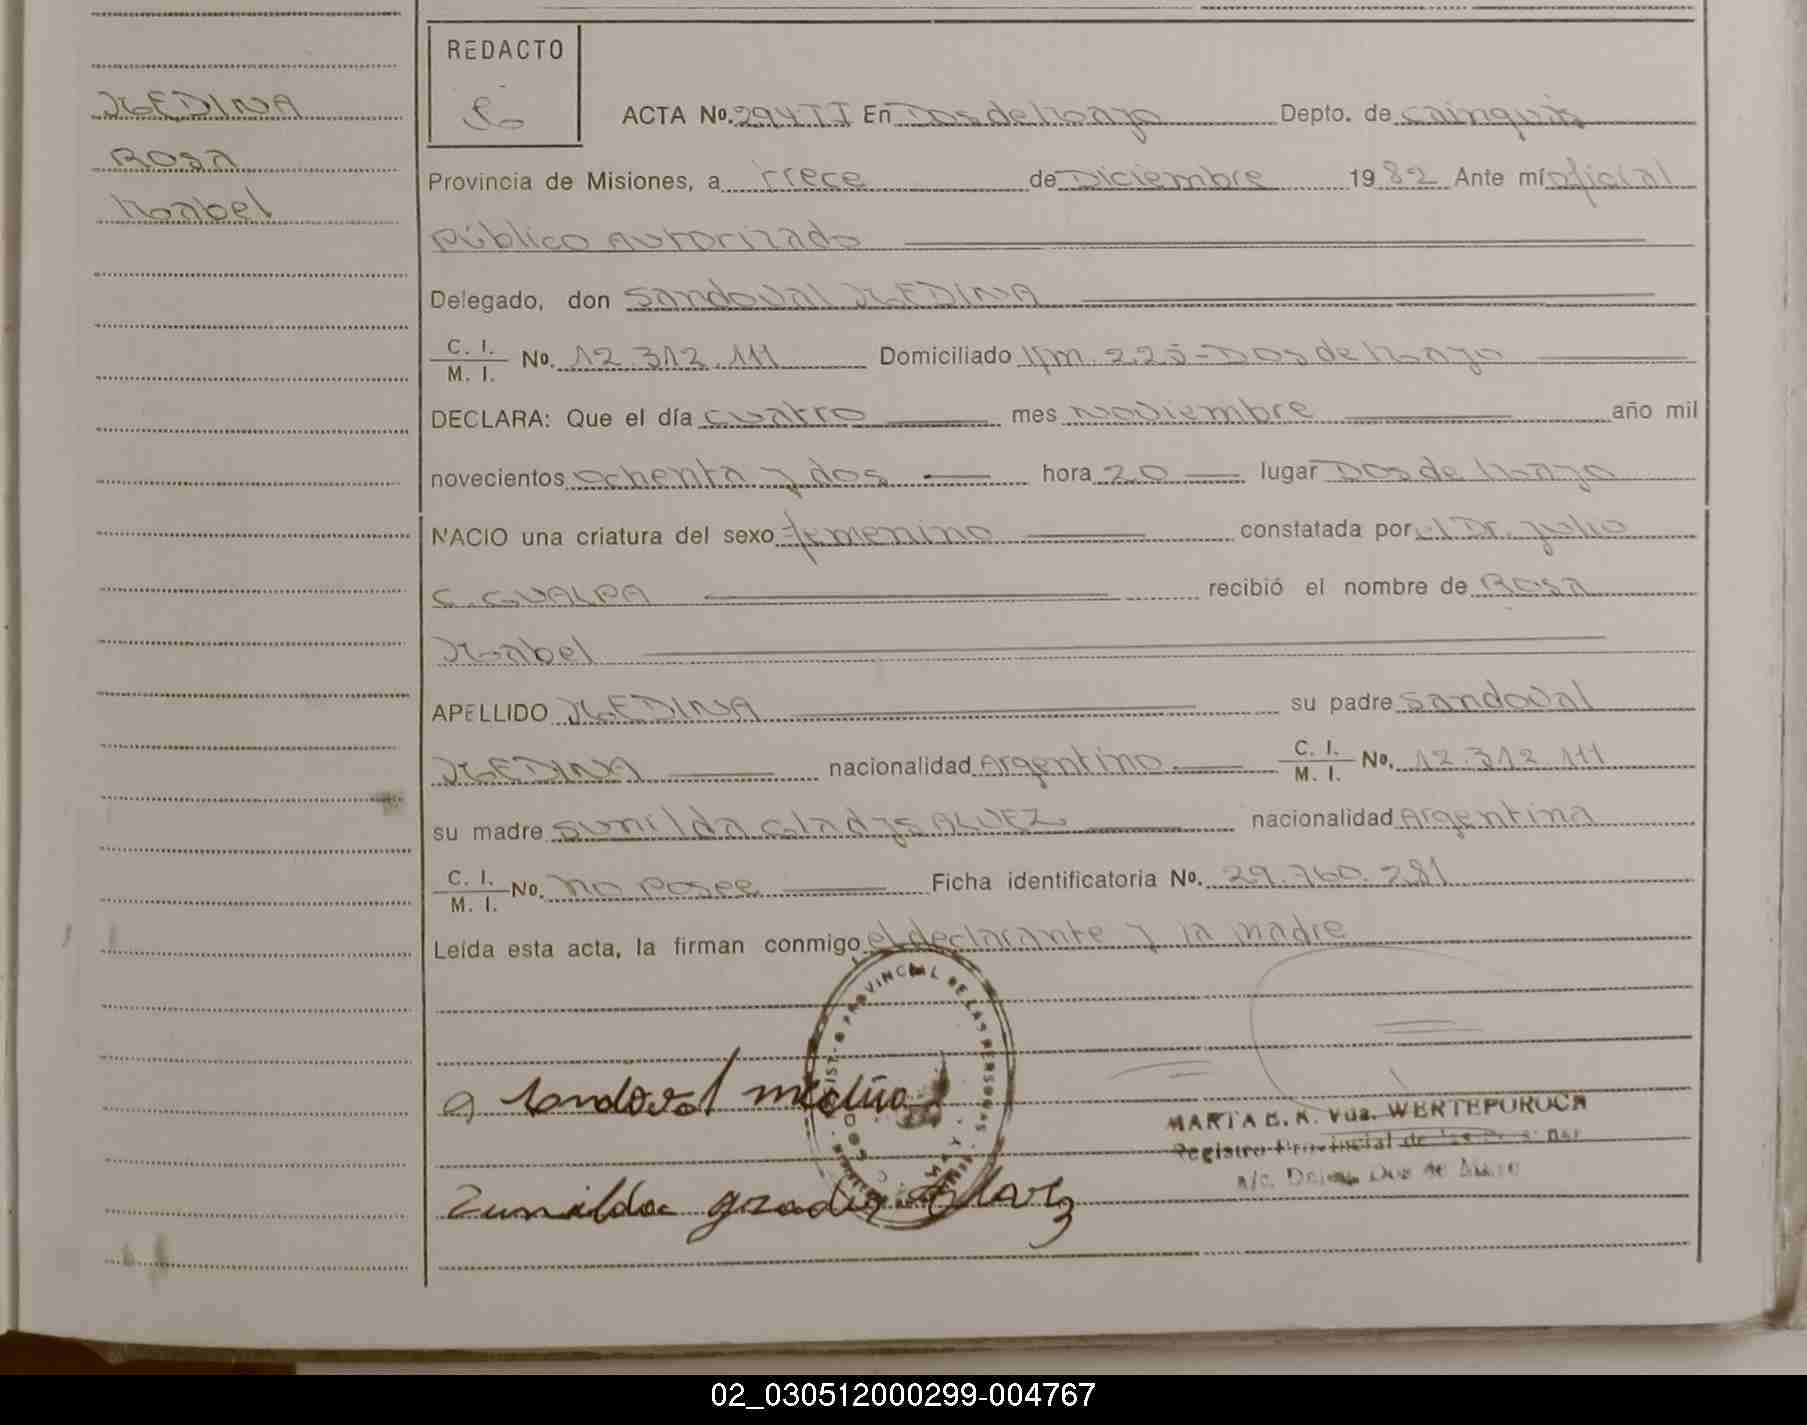 MEDINA
Rosa
Mabel
REDACTO
ACTA No. 294 TI En Dos de Mayo Depto. de Cainguás
Provincia de Misiones, a trece de Diciembre 1982 Ante mí oficial
público Autorizado
Delegado, don Sandoval MEDINA
C. I.
M. I. No. 12.312.111 Domiciliado Km. 225-Dos de Mayo
DECLARA: Que el día cuatro mes noviembre año mil
novecientos ochenta y dos hora 20 lugar Dos de Mayo
NACIO una criatura del sexo femenino constatada por el Dr. Julio
C. GUALPA recibió el nombre de Rosa
Mabel
APELLIDO MEDINA su padre Sandoval
MEDINA nacionalidad Argentino C. I.
M. I. No. 12.312.111
su madre Sunilda Gladys ALVEZ nacionalidad Argentina
C. I.
M. I. No. no posee Ficha identificatoria No. 29.760.281
Leída esta acta, la firman conmigo el declarante y la madre
PROVINCIAL DE LAS PERSONAS
Sandoval medina
MARTA E. K. Vda. WERTEPUROCH
Registro Provincial de las Personas
a/c. Deleg. Dos de Mayo
Zunilda gradis Alvez
02_030512000299-004767